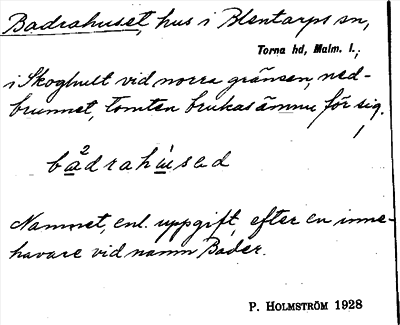 Badrahuset, hus i Blentarps sn,
Torna hd, Malm. l.;
i Skoghult vid norra gränsen, ned-
brunnet, tomten brukas ännu för sig.
Namnet, enl. uppgift, efter en inne-
havare vid namn Bader.
P. HOLMSTRÖM 1928